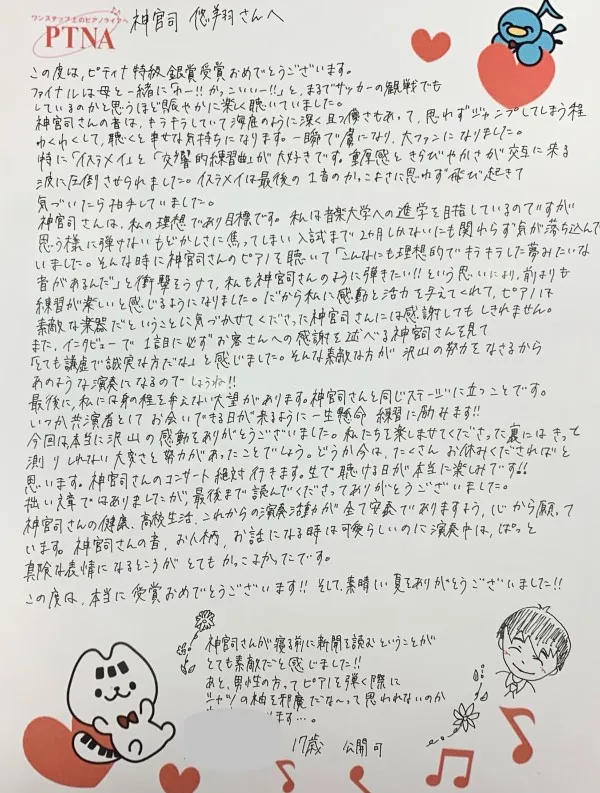 ワンステップ上のピアノライフへ
PTNA
神宮司 悠翔さんへ
この度は、ピティナ特級銀賞受賞おめでとうございます。
ファイナルは母と一緒に「わー!!かっこいいー!!」と、まるでサッカーの観戦でも
しているのかと思うほど賑やかに楽しく聴いていました。
神宮司さんの音は、キラキラしていて海底のように深く且つ儚さもあって、思わずジャンプしてしまう程
わくわくして、聴くと幸せな気持ちになります。一瞬で虜になり、大ファンになりました。
特に「イスラメイ」と「交響的練習曲」が大好きです。重厚感ときらびやかさが交互に来る
波に圧倒させられました。イスラメイは最後の1音のかっこよさに思わず飛び起きて
気づいたら拍手していました。
神宮司さんは、私の理想であり目標です。私は音楽大学への進学を目指しているのですが
思う様に弾けないもどかしさに焦ってしまい入試まで2ヵ月しかないにも関わらず気が落ち込んで
いました。そんな時に神宮司さんのピアノを聴いて「こんなにも理想的でキラキラした夢みたいな
音があるんだ」と衝撃をうけて、私も神宮司さんのように弾きたい!!という思いにより、前よりも
練習が楽しいと感じるようになりました。だから私に感動と活力を与えてくれて、ピアノは
素敵な楽器だということに気づかせてくださった神宮司さんには感謝してもしきれません。
また、インタビューで1番目に必ずお客さんへの感謝を述べる神宮司さんを見て
「とても謙虚で誠実な方だな」と感じました。そんな素敵な方が沢山の努力をなさるから
あのような演奏になるのでしょうね!!
最後に、私には身の程を弁えない大望があります。神宮司さんと同じステージに立つことです。
いつか共演者としてお会いできる日が来るように一生懸命練習に励みます!!
今回は本当に沢山の感動をありがとうございました。私たちを楽しませてくださった裏にはきっと
測りしれない大変さと努力があったことでしょう。どうか今は、たくさんお休みくださればと
思います。神宮司さんのコンサート絶対行きます。生で聴ける日が本当に楽しみです!!
拙い文章ではありましたが、最後まで読んでくださってありがとうございました。
神宮司さんの健康、高校生活、これからの演奏活動が全て安泰でありますよう、心から願って
います。神宮司さんの音、お人柄、お話になる時は可愛らしいのに演奏中は、ぱっと
真険な表情になるところがとてもかっこよかったです。
この度は、本当に受賞おめでとうございます!!そして、素晴しい夏をありがとうございました!!
神宮司さんが寝る前に新聞を読むということが
とても素敵だなと感じました!!
あと、男性の方ってピアノを弾く際に
シャツの袖を邪魔だな〜って思われないのか
ます…。
17歳 公開可